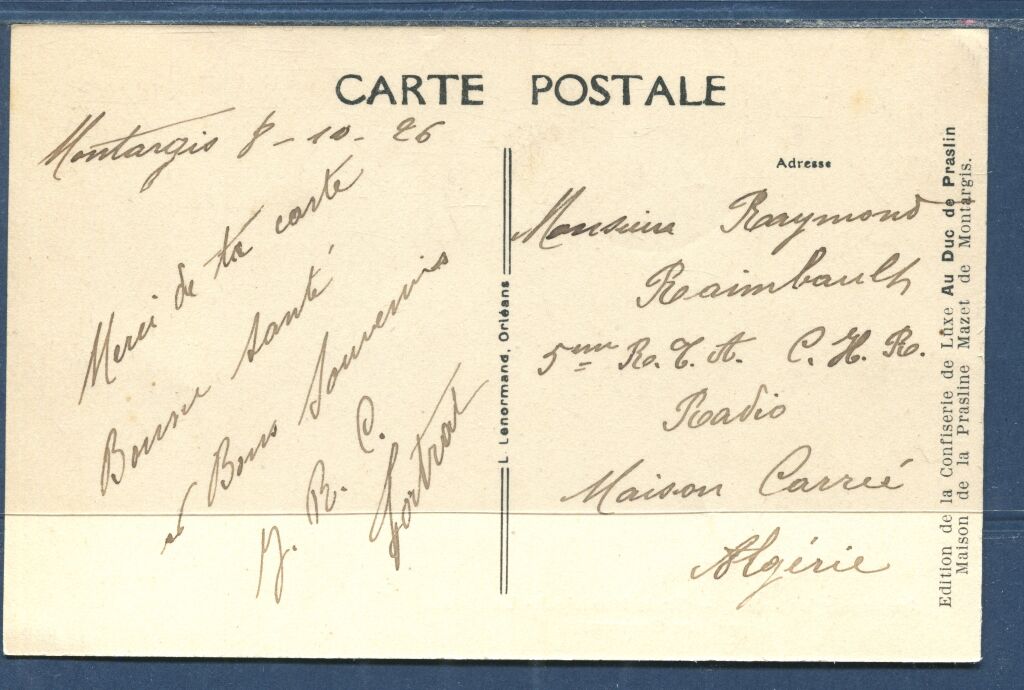 CARTE POSTALE
Montargis 8-10-26
Merci de ta carte
Bonne santé
et Bons Souvenirs
Y. R. C.
Fortrat
L. Lenormand, Orléans
Adresse
Monsieur Raymond
Raimbault
5eme R.T.A. C.H.R.
Radio
Maison Carrée
Algérie
Edition de la Confiserie de Luxe Au Duc de Praslin
Maison de la Prasline Mazet de Montargis.